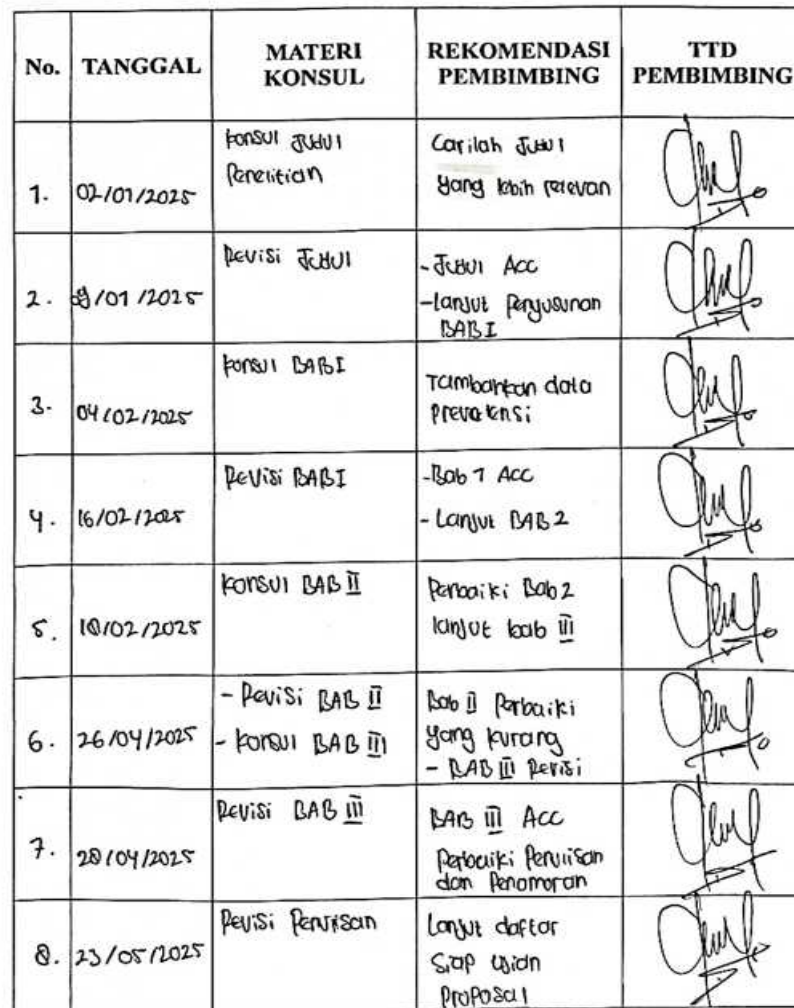 No. TANGGAL MATERI KONSUL REKOMENDASI PEMBIMBING TTD PEMBIMBING
1. 02/01/2025
Konsul Judul
Penelitian
Carilah Judul
yang lebih relevan
2. /01/2025
Revisi Judul
- Judul Acc
- Lanjut Penyusunan
BAB I
3. 04/02/2025
Konsul BAB I
Tambahkan data
prevalensi
4. 16/02/2025
Revisi BAB I
- Bab 1 Acc
- Lanjut BAB 2
5. 18/02/2025
Konsul BAB II
Perbaiki Bab 2
lanjut bab III
6. 26/04/2025
- Revisi BAB II
- Konsul BAB III
Bab II Perbaiki
yang kurang
- BAB III Revisi
7. 28/04/2025
Revisi BAB III
BAB III Acc
Perbaiki Penulisan
dan Penomoran
8. 23/05/2025
Revisi Penulisan
Lanjut daftar
Siap Ujian
Proposal